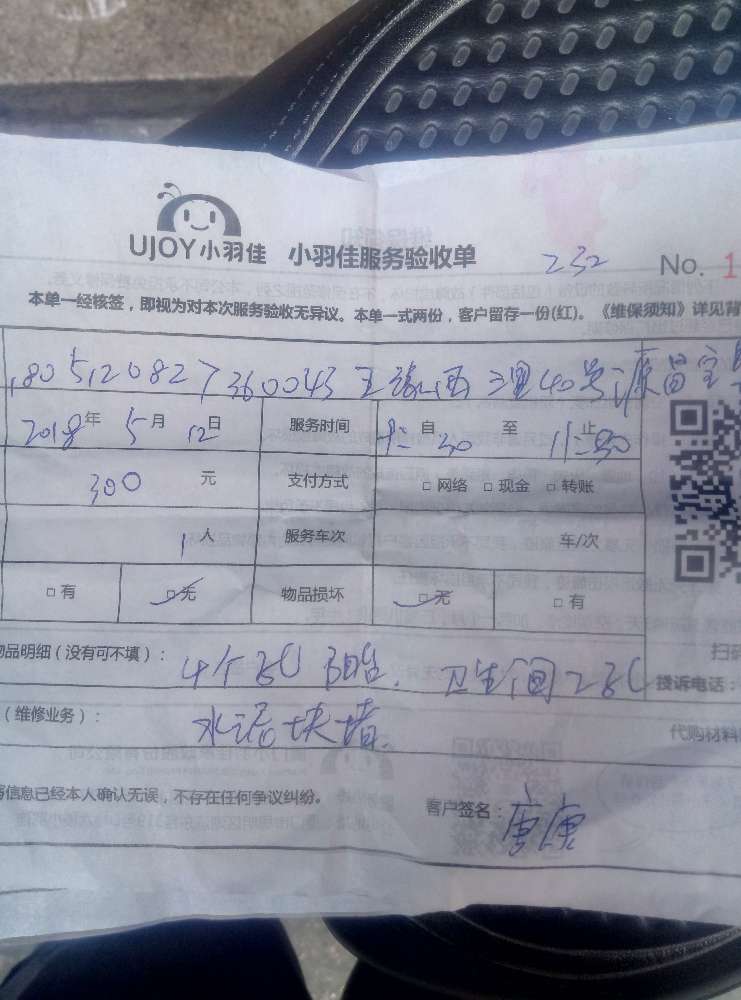 UJOY小羽佳 小羽佳服务验收单 232 No. 1
本单一经核签，即视为对本次服务验收无异议。本单一式两份，客户留存一份(红)。《维保须知》详见背
1805120827360043 西 40号 源昌宝
2018年 5月 12日 服务时间 自 至 止
300 元 支付方式 □ 网络 □ 现金 □ 转账
1 人 服务车次 车/次
□ 有 □ 无 物品损坏 □ 无 □ 有
扫码
品明细（没有可不填）： 4个孔 阳台. 卫生间2孔 投诉电话：
（维修业务）： 水泥块墙. 代购材料
信息已经本人确认无误，不存在任何争议纠纷。
客户签名：